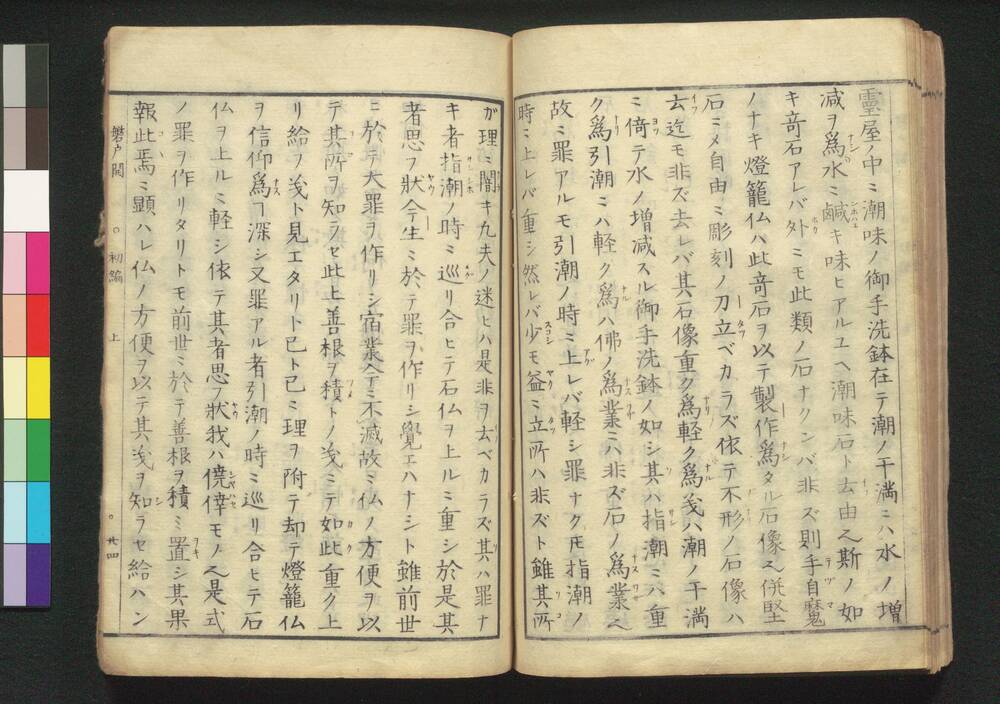 靈屋ノ中ミ潮味ノ御手洗鉢在テ潮ノ干満ミハ水ノ増
減ヲ爲水ミ鹹キ味ヒアルユヘ潮味石ト去由ヘ斯ノ如
キ竒石アレバ外ミモ此類ノ石ナクンバ非ズ則手自魔
ノナキ燈籠仏ハ此竒石ヲ以テ製作爲タル石像ヘ併堅
石ミメ自由ミ彫刻ノ刀立ベカラズ依テ不形ノ石像ハ
去迄モ非ズ去レバ其石像重ク爲軽ク爲㐮ハ潮ノ干満
ミ倚テ水ノ増减スル御手洗鉢ノ如シ其ハ指潮ミハ重
ク爲引潮ミハ軽ク爲ハ佛ノ爲業ミハ非ズ石ノ爲業ヘ
故ミ罪アルモ引潮ノ時ミ上レバ軽シ罪ナク𪜈指潮ノ
時ミ上レバ重シ然レバ少モ益ミ立所ハ非ズト雖其所
ガ理ミ闇キ凡夫ノ迷ヒハ是非ヲ去ベカラズ其ハ罪ナ
キ者指潮ノ時ミ巡リ合ヒテ石仏ヲ上ルミ重シ於是其
者思フ狀今生ミ於テ罪ヲ作リシ覺エハナシト雖前世
ニ於テ大罪ヲ作リシ宿業今ミ不滅故ミ仏ノ方便ヲ以
テ其所ヲ知ラセ此上善根ヲ積トノ㐮ミテ如此重ク上
リ給フ㐮ト見エタリト已ト已ミ理ヲ附テ却テ燈籠仏
ヲ信仰爲ヿ深シ又罪アル者引潮ノ時ミ巡リ合ヒテ石
仏ヲ上ルミ軽シ依テ其者思フ狀我ハ僥倖モノヘ是式
ノ罪ヲ作リタリトモ前世ミ於テ善根ヲ積ミ置シ其果
報此焉ミ顯ハレ仏ノ方便ヲ以テ其㐮ヲ知ラセ給ハン
磐戸開 ○初編 上 ○廿四